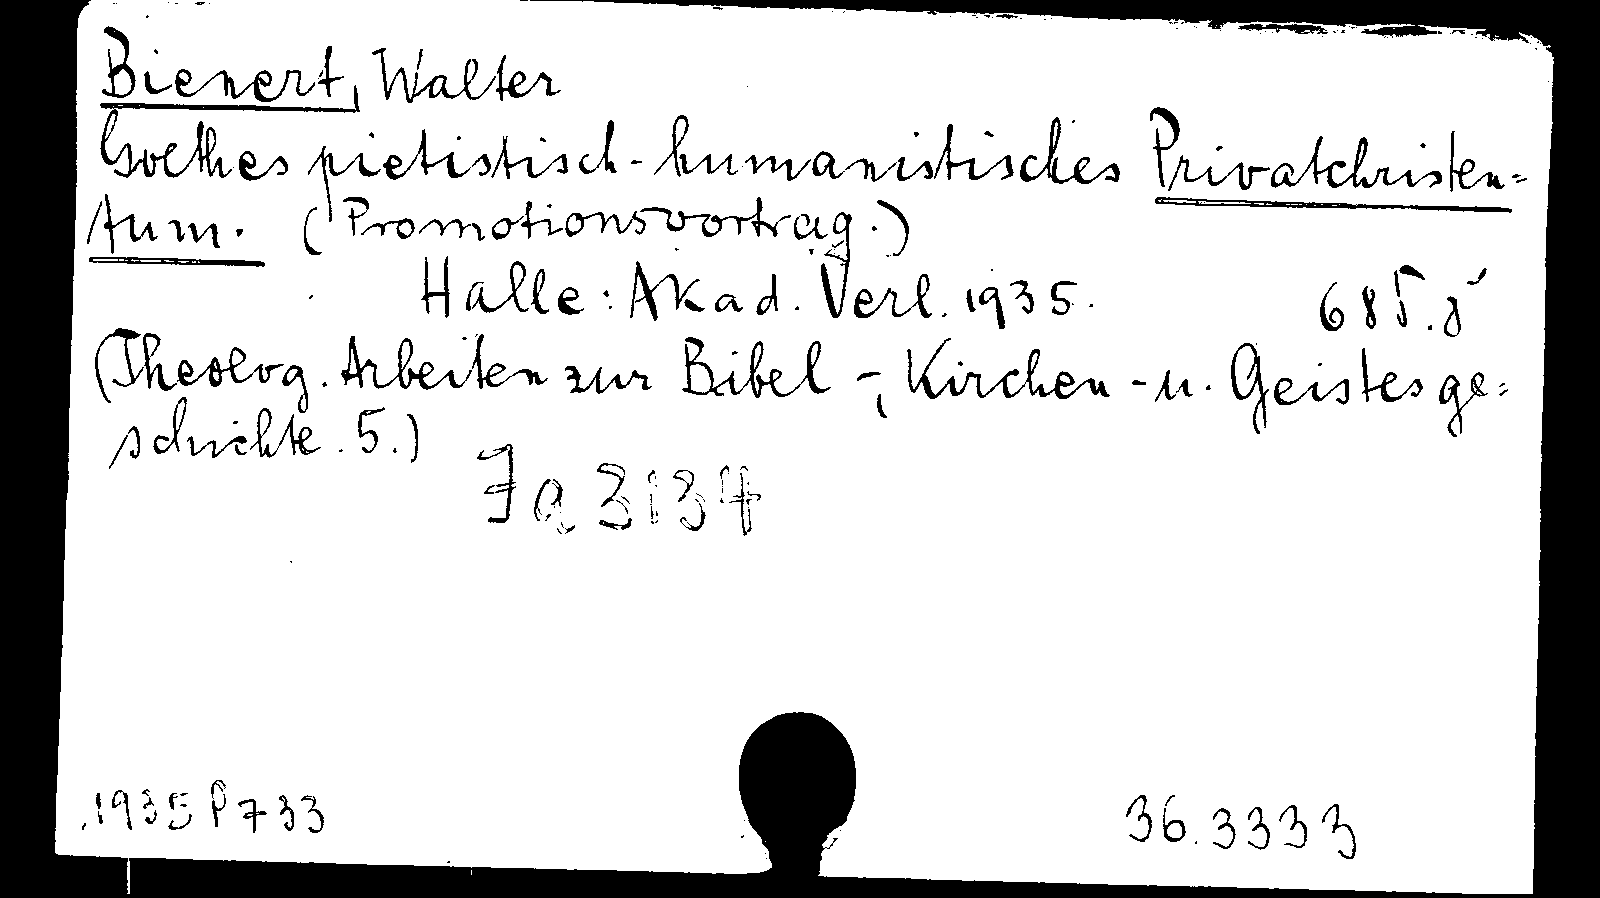 Bienert, Walter
Goethes pietistisch-humanistisches Privatchristen=
tum. (Promotionsvortrag.)
Halle: Akad. Verl. 1935. 68 S. 8°
(Theolog. Arbeiten zur Bibel-, Kirchen- u. Geistesge=
schichte. 5.)
Ja 3134
1935 P 733
36.3333